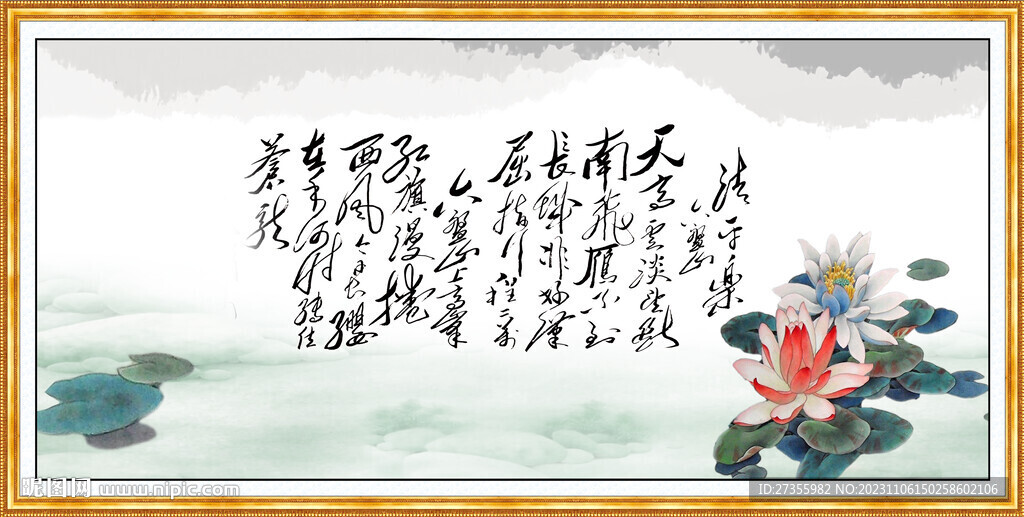 清平樂
六盤山
天高雲淡望斷
南飛雁不到
長城非好漢
屈指行程二萬
六盤山上高峯
紅旗漫捲
西風今日長纓
在手何時縛住
蒼龍
昵图网 www.nipic.com
ID:27355982 NO:20231106150258602106